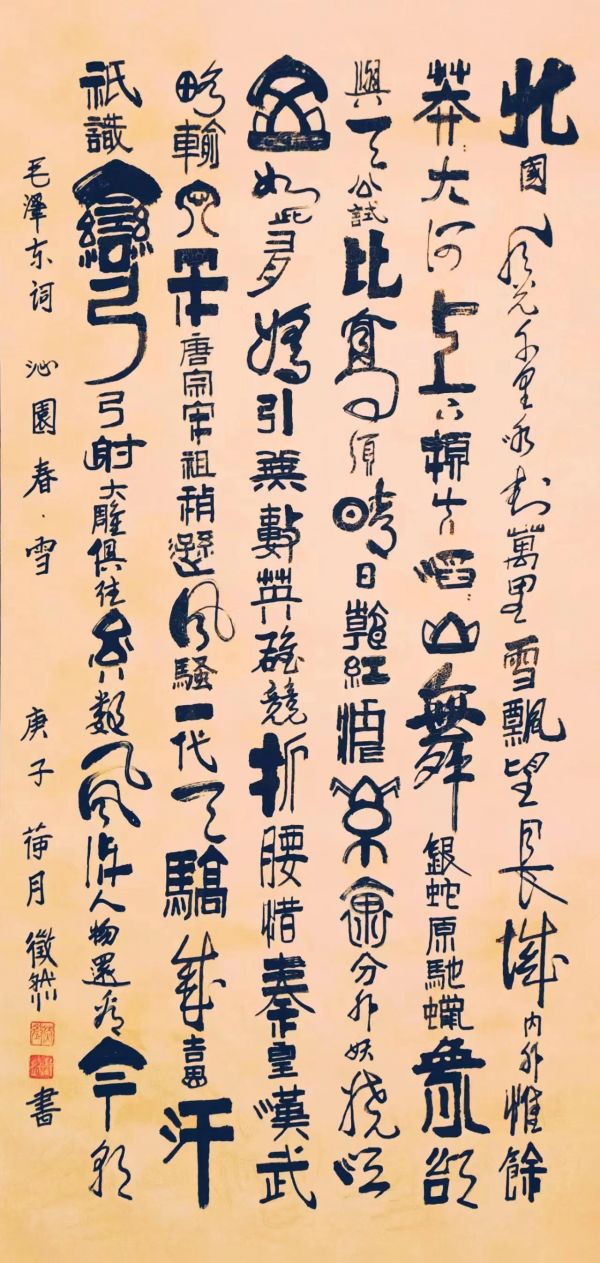 北國風光千里冰封萬里雪飄望長城内外惟餘
莽〻大河上下頓失滔〻山舞銀蛇原馳蠟象欲
與天公試比高須晴日看紅裝素裹分外妖嬈江
山如此多嬌引無數英雄競折腰惜秦皇漢武
略輸文采唐宗宋祖稍遜風騷一代天驕成吉思汗
祇識彎弓射大雕俱往矣數風流人物還看今朝
毛澤东词 沁園春·雪 庚子荷月徵然書